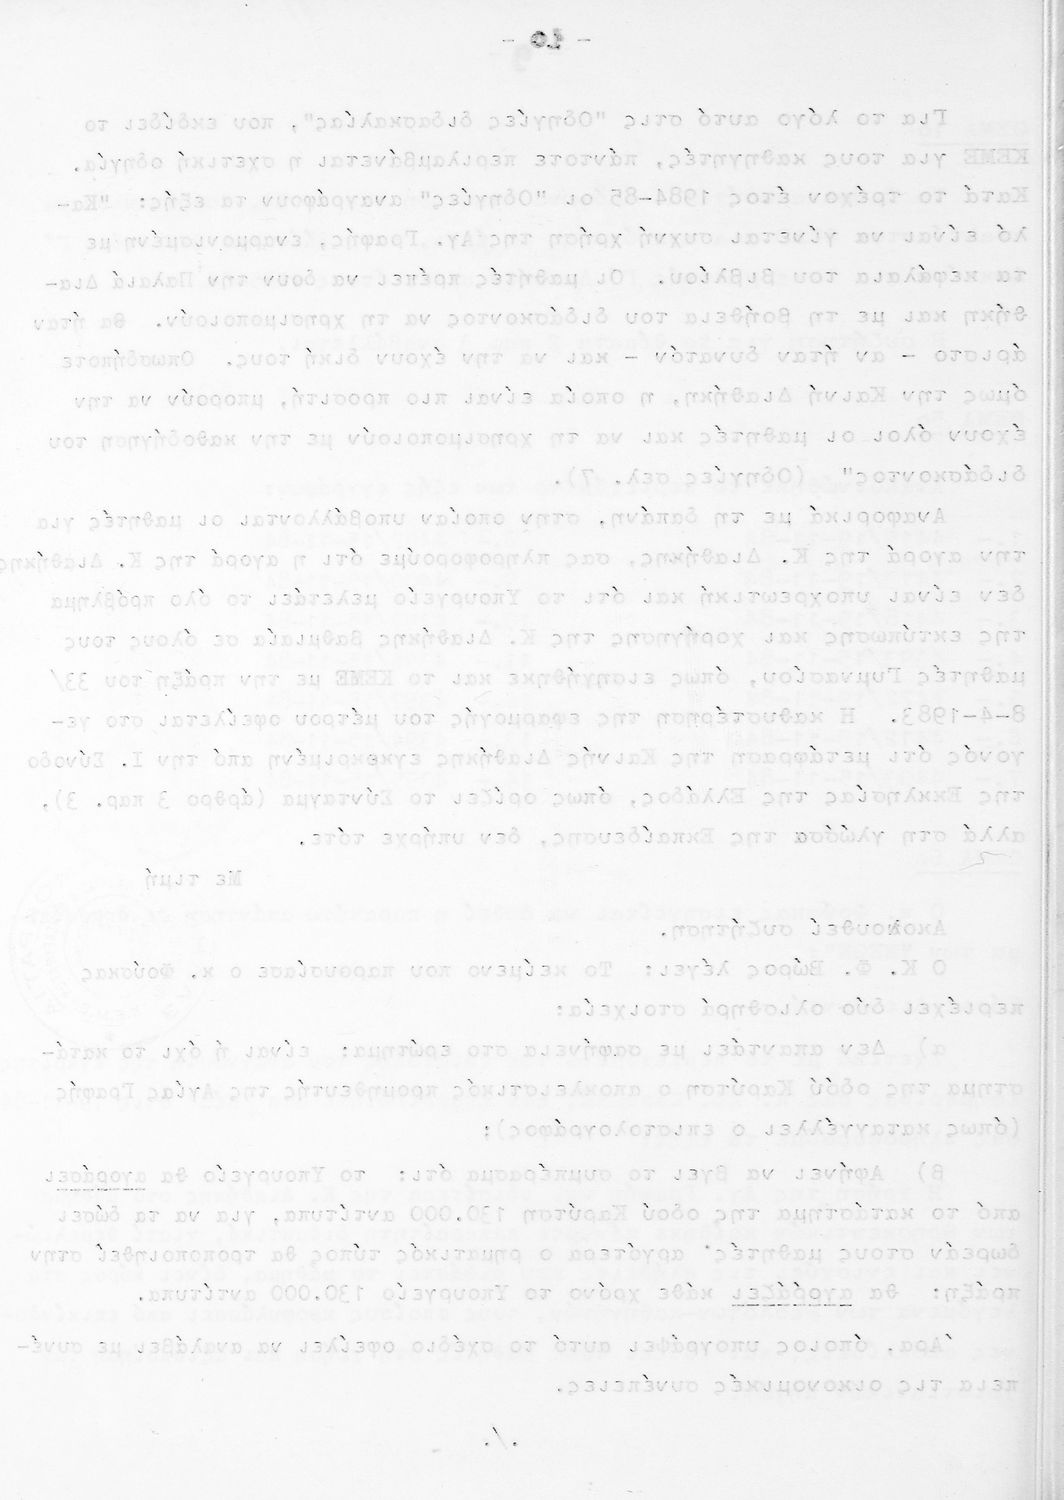 - 10 -
Για το λόγο αυτό στις "Οδηγίες διδασκαλίας", που εκδίδει το
ΚΕΜΕ για τους καθηγητές, πάντοτε περιλαμβάνεται η σχετική οδηγία.
Κατά το τρέχον έτος 1984-85 οι "Οδηγίες" αναγράφουν τα εξής: "Κα-
λό είναι να γίνεται συχνή χρήση της Αγ. Γραφής, εναρμονισμένη με
τα κεφάλαια του βιβλίου. Οι μαθητές πρέπει να δουν την Παλαιά Δια-
θήκη και με τη βοήθεια του διδάσκοντος να τη χρησιμοποιούν. Θα ήταν
άριστο - αν ήταν δυνατόν - και να την έχουν δική τους. Οπωσδήποτε
όμως την Καινή Διαθήκη, η οποία είναι πιο προσιτή, μπορούν να την
έχουν όλοι οι μαθητές και να τη χρησιμοποιούν με την καθοδήγηση του
διδάσκοντος" (Οδηγίες σελ. 7).
Αναφορικά με τη δαπάνη, στην οποίαν υποβάλλονται οι μαθητές για
την αγορά της Κ. Διαθήκης, σας πληροφορούμε ότι η αγορά της Κ. Διαθήκης
δεν είναι υποχρεωτική και ότι το Υπουργείο μελετάει το όλο πρόβλημα
της εκτύπωσης και χορήγησης της Κ. Διαθήκης βαθμιαία σε όλους τους
μαθητές Γυμνασίου, όπως εισηγήθηκε και το ΚΕΜΕ με την πράξη του 33/
8-4-1983. Η καθυστέρηση της εφαρμογής του μέτρου οφείλεται στο γε-
γονός ότι μετάφραση της Καινής Διαθήκης εγκεκριμένη από την Ι. Σύνοδο
της Εκκλησίας της Ελλάδος, όπως ορίζει το Σύνταγμα (άρθρο 3 παρ. 3),
αλλά στη γλώσσα της Εκπαίδευσης, δεν υπήρχε τότε.
Με τιμή
Ακολουθεί συζήτηση.
Ο Κ. Φ. Βώρος λέγει: Το κείμενο που παρουσίασε ο κ. Φούσκας
περιέχει δύο ολισθηρά στοιχεία:
α) Δεν απαντάει με σαφήνεια στο ερώτημα: είναι ή όχι το κατά-
στημα της οδού Καρύτση ο αποκλειστικός προμηθευτής της Αγίας Γραφής
(όπως καταγγέλλει ο επιστολογράφος);
β) Αφήνει να βγει το συμπέρασμα ότι: το Υπουργείο θα αγοράσει
από το κατάστημα της οδού Καρύτση 130.000 αντίτυπα, για να τα δώσει
δωρεάν στους μαθητές· αργότερα ο ρηματικός τύπος θα τροποποιηθεί στην
πράξη: θα αγοράζει κάθε χρόνο το Υπουργείο 130.000 αντίτυπα.
Άρα, όποιος υπογράψει αυτό το σχέδιο οφείλει να αναλάβει με συνέ-
πεια τις οικονομικές συνέπειες.
./.